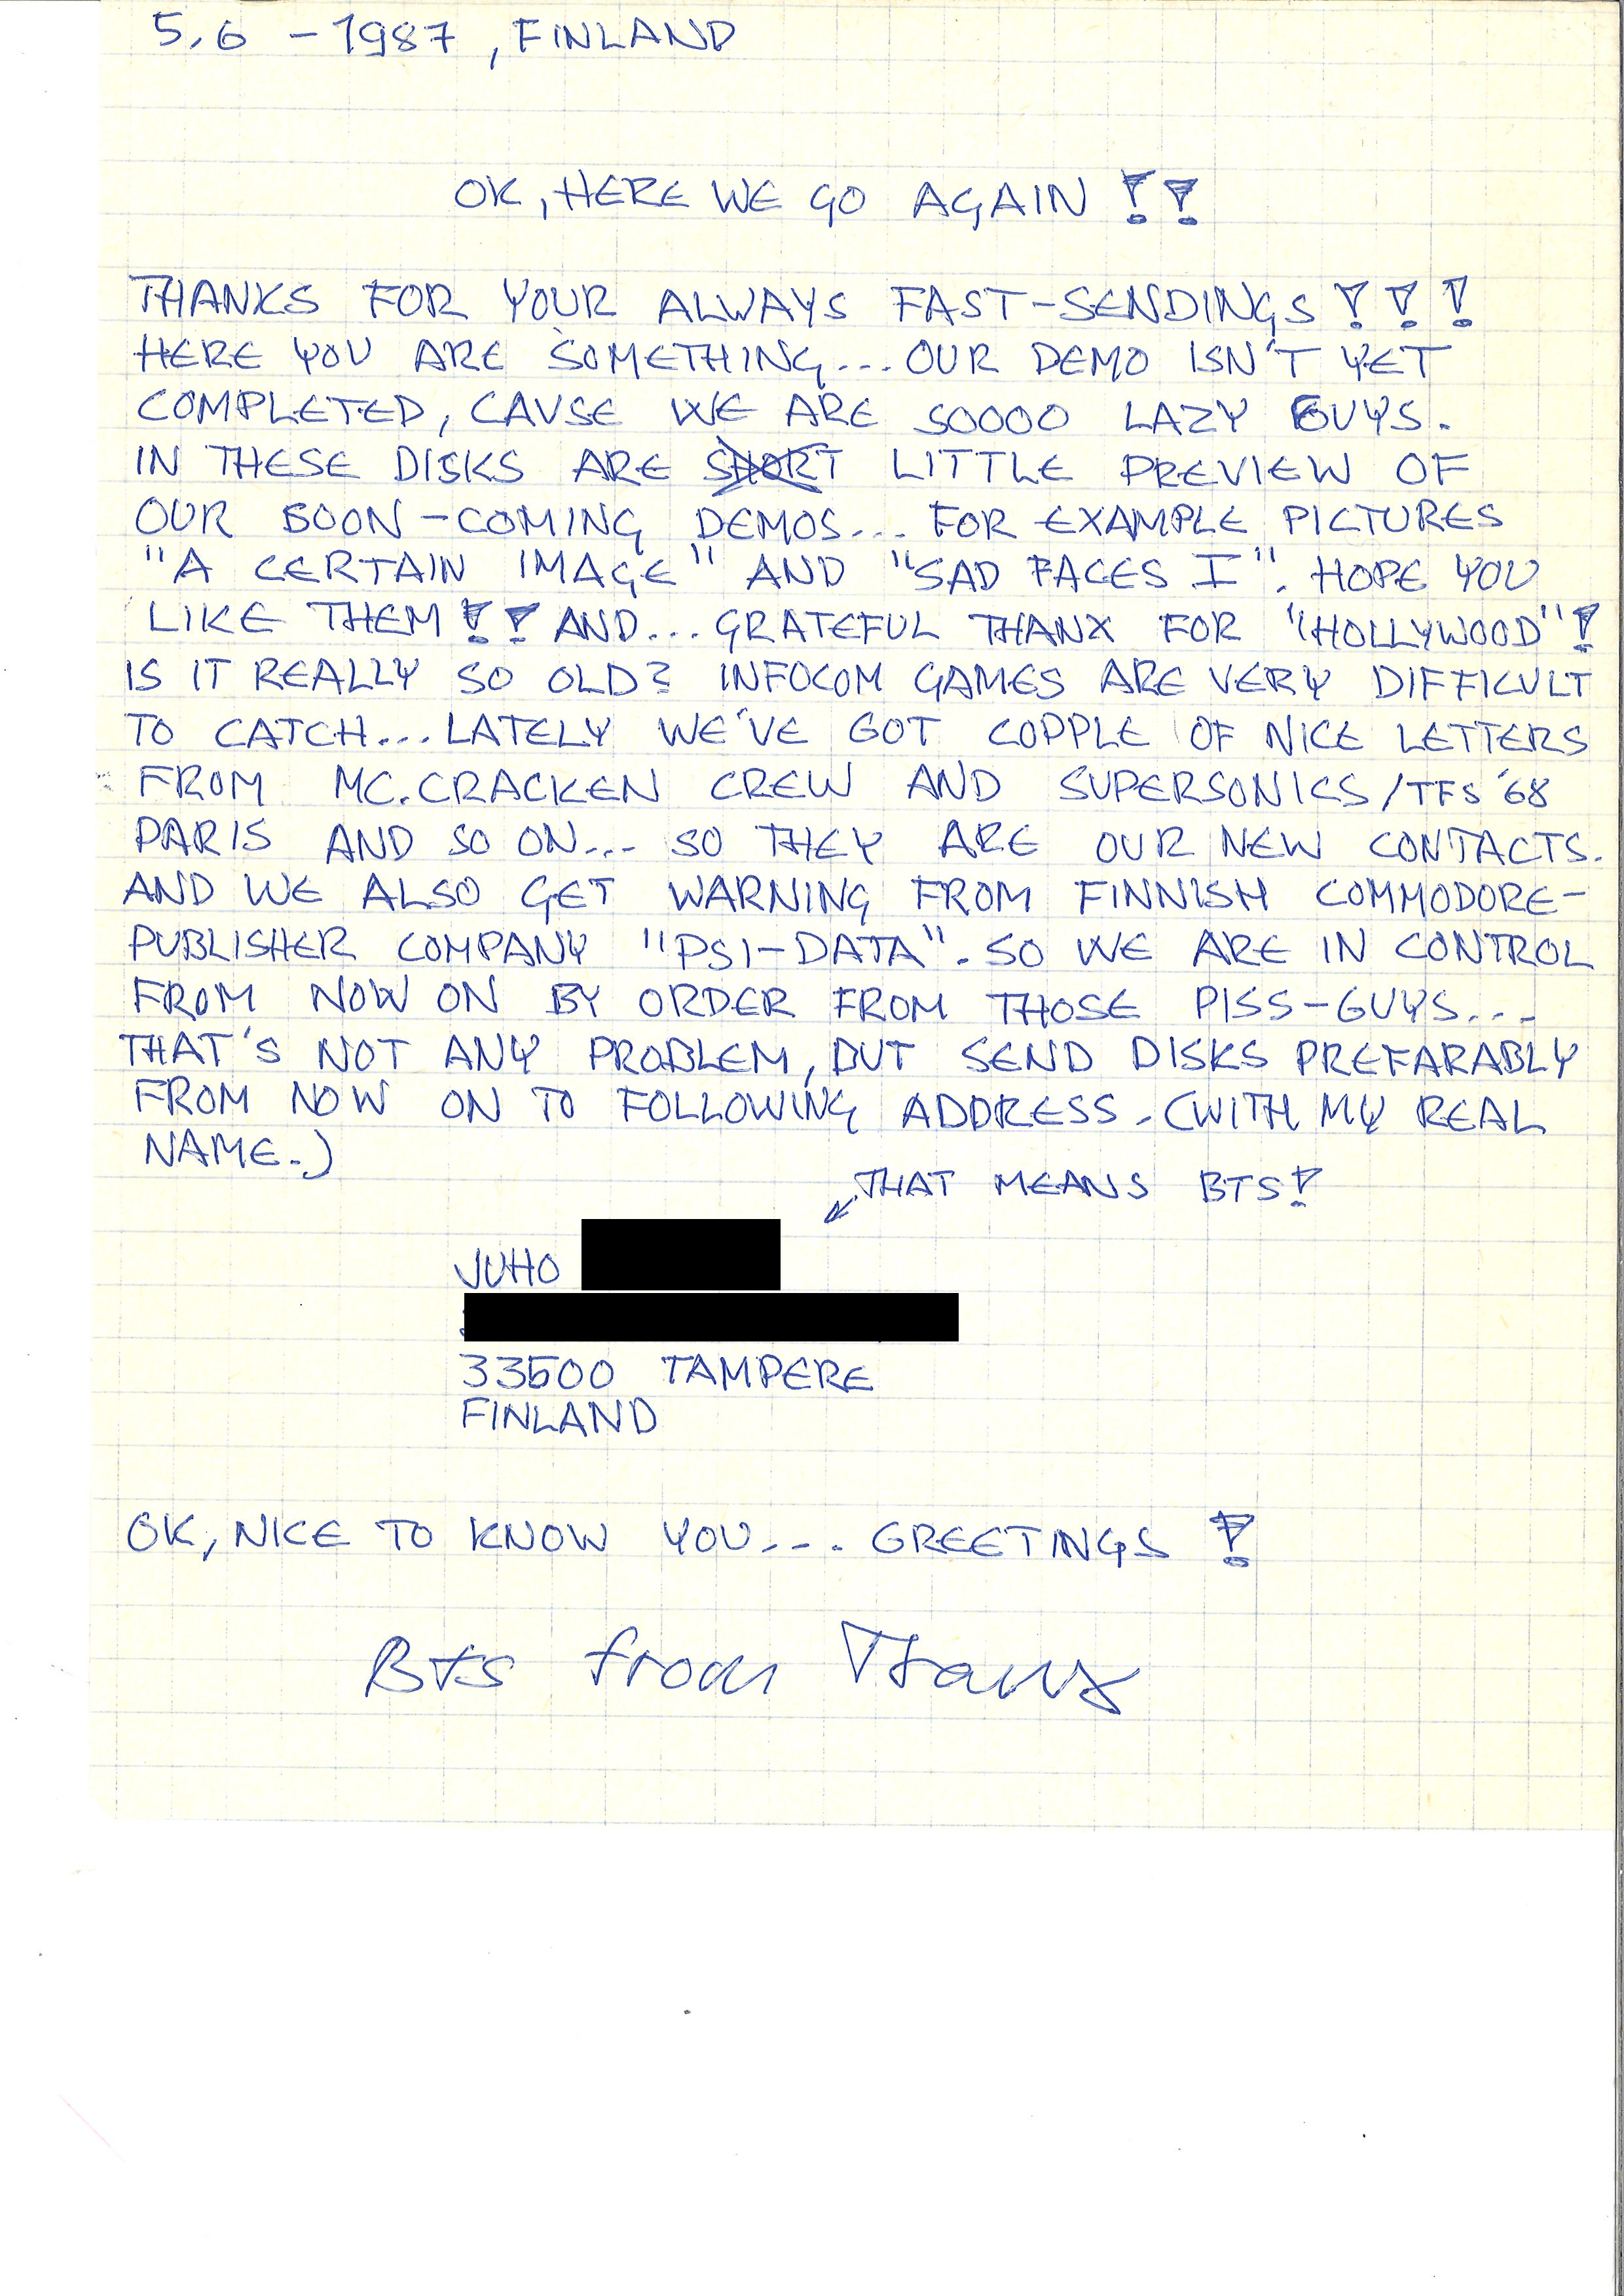 5.6 -1987, FINLAND
OK, HERE WE GO AGAIN !!
THANKS FOR YOUR ALWAYS FAST-SENDINGS!!!
HERE YOU ARE SOMETHING... OUR DEMO ISN'T YET
COMPLETED, CAUSE WE ARE SOOOO LAZY GUYS.
IN THESE DISKS ARE SHORT LITTLE PREVIEW OF
OUR SOON-COMING DEMOS... FOR EXAMPLE PICTURES
"A CERTAIN IMAGE" AND "SAD FACES I". HOPE YOU
LIKE THEM!! AND... GRATEFUL THANX FOR "HOLLYWOOD"!
IS IT REALLY SO OLD? INFOCOM GAMES ARE VERY DIFFICULT
TO CATCH... LATELY WE'VE GOT COPPLE OF NICE LETTERS
FROM MC.CRACKEN CREW AND SUPERSONICS/TFS '68
PARIS AND SO ON... SO THEY ARE OUR NEW CONTACTS.
AND WE ALSO GET WARNING FROM FINNISH COMMODORE-
PUBLISHER COMPANY "PSI-DATA". SO WE ARE IN CONTROL
FROM NOW ON BY ORDER FROM THOSE PISS-GUYS...
THAT'S NOT ANY PROBLEM, BUT SEND DISKS PREFARABLY
FROM NOW ON TO FOLLOWING ADDRESS. (WITH MY REAL
NAME.)
THAT MEANS BTS!
JUHO
33500 TAMPERE
FINLAND
OK, NICE TO KNOW YOU... GREETINGS !
Bts from Thanx